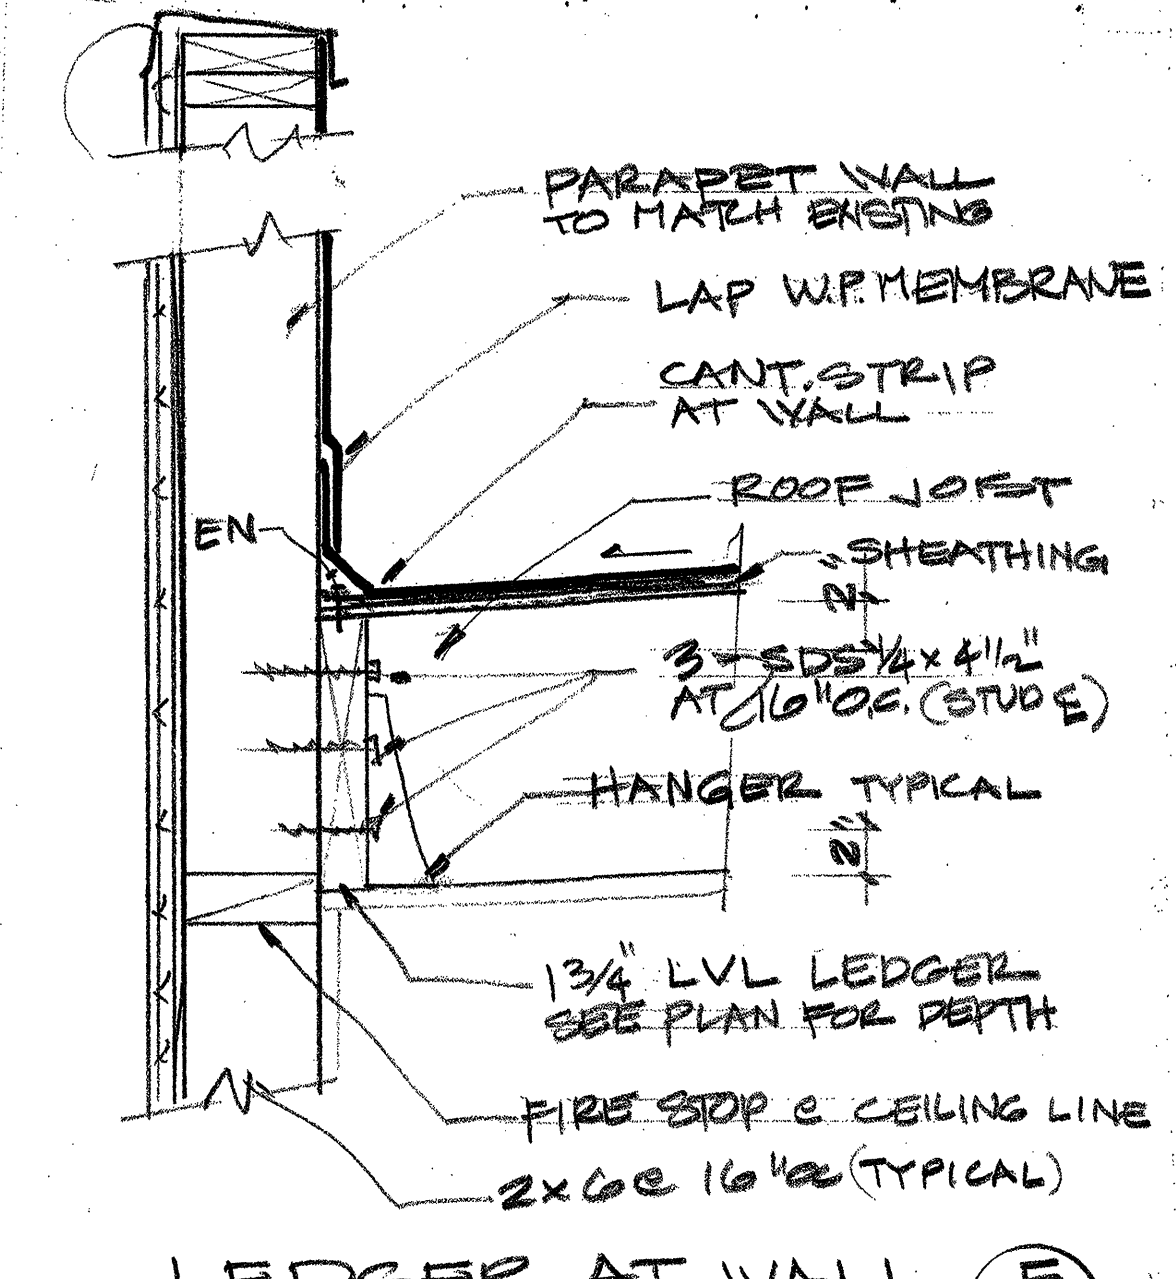 PARAPET WALL
TO MATCH EXISTING
LAP W.P. MEMBRANE
CANT. STRIP
AT WALL
ROOF JOIST
EN
SHEATHING
2"
3-SDS 1/4 x 4 1/2"
AT 16" O.C. (STUD ℄)
HANGER TYPICAL
2"
1 3/4" LVL LEDGER
SEE PLAN FOR DEPTH
FIRE STOP @ CEILING LINE
2x6 @ 16" oc (TYPICAL)
LEDGER AT WALL